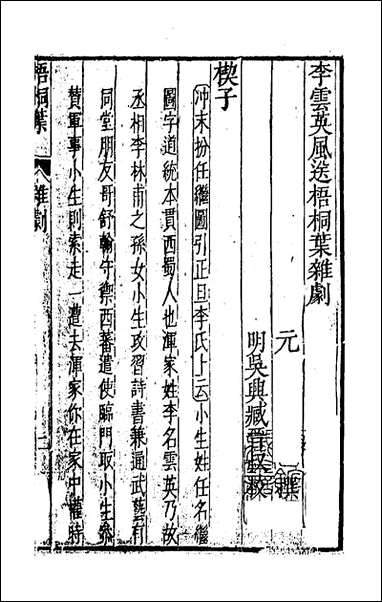 李雲英風送梧桐葉雜劇
元
明吳興臧晉叔校
楔子
沖末扮任繼圖引正旦李氏上云小生姓任名繼
圖字道統本貫西蜀人也渾家姓李名雲英乃故
丞相李林甫之孫女小生攻習詩書兼通武藝有
同堂朋友哥舒翰守禦西蕃遣使臨門取小生參
贊軍事小生則索走一遭去渾家你在家中權時
梧桐葉
雜劇
一